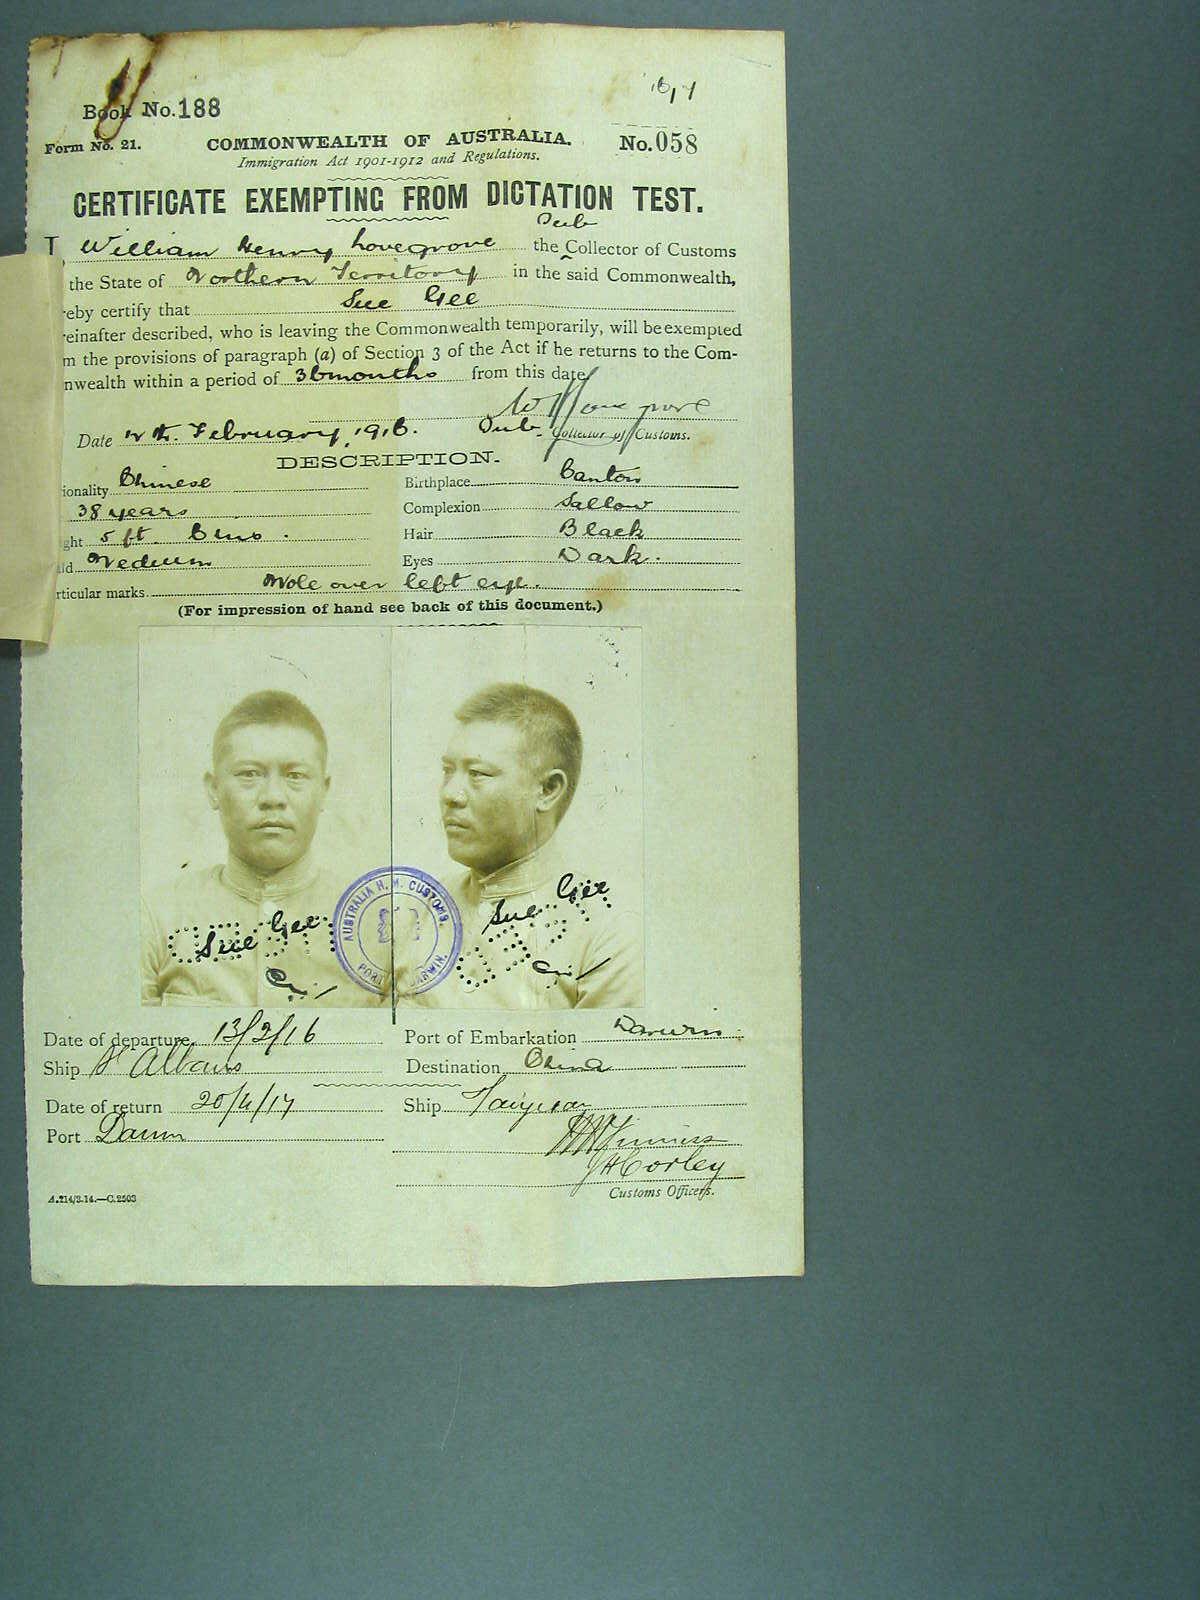 Book No. 188
Form No. 21.
COMMONWEALTH OF AUSTRALIA.
No. 058
Immigration Act 1901-1912 and Regulations.
CERTIFICATE EXEMPTING FROM DICTATION TEST.
Sub
I, William Henry Lovegrove the Collector of Customs
the State of Northern Territory in the said Commonwealth,
eby certify that Sue Gee
einafter described, who is leaving the Commonwealth temporarily, will be exempted
m the provisions of paragraph (a) of Section 3 of the Act if he returns to the Com-
nwealth within a period of 36 months from this date
W H Lovegrove
Date 12th. February, 1916. Sub. Collector of Customs.
DESCRIPTION.
ionality Chinese Birthplace Canton
38 years Complexion Sallow
ght 5 ft. 6 ins. Hair Black
ld Medium Eyes Dark.
rticular marks Mole over left eye.
(For impression of hand see back of this document.)
AUSTRALIA H. M. CUSTOMS.
PORT DARWIN.
Sue Gee
Sue Gee
Date of departure 13/2/16 Port of Embarkation Darwin
Ship St Albans Destination China
Date of return 20/4/17 Ship Taiyuan
Port Darwin
J H Corley
Customs Officers.
A.214/3.14.—C.2503